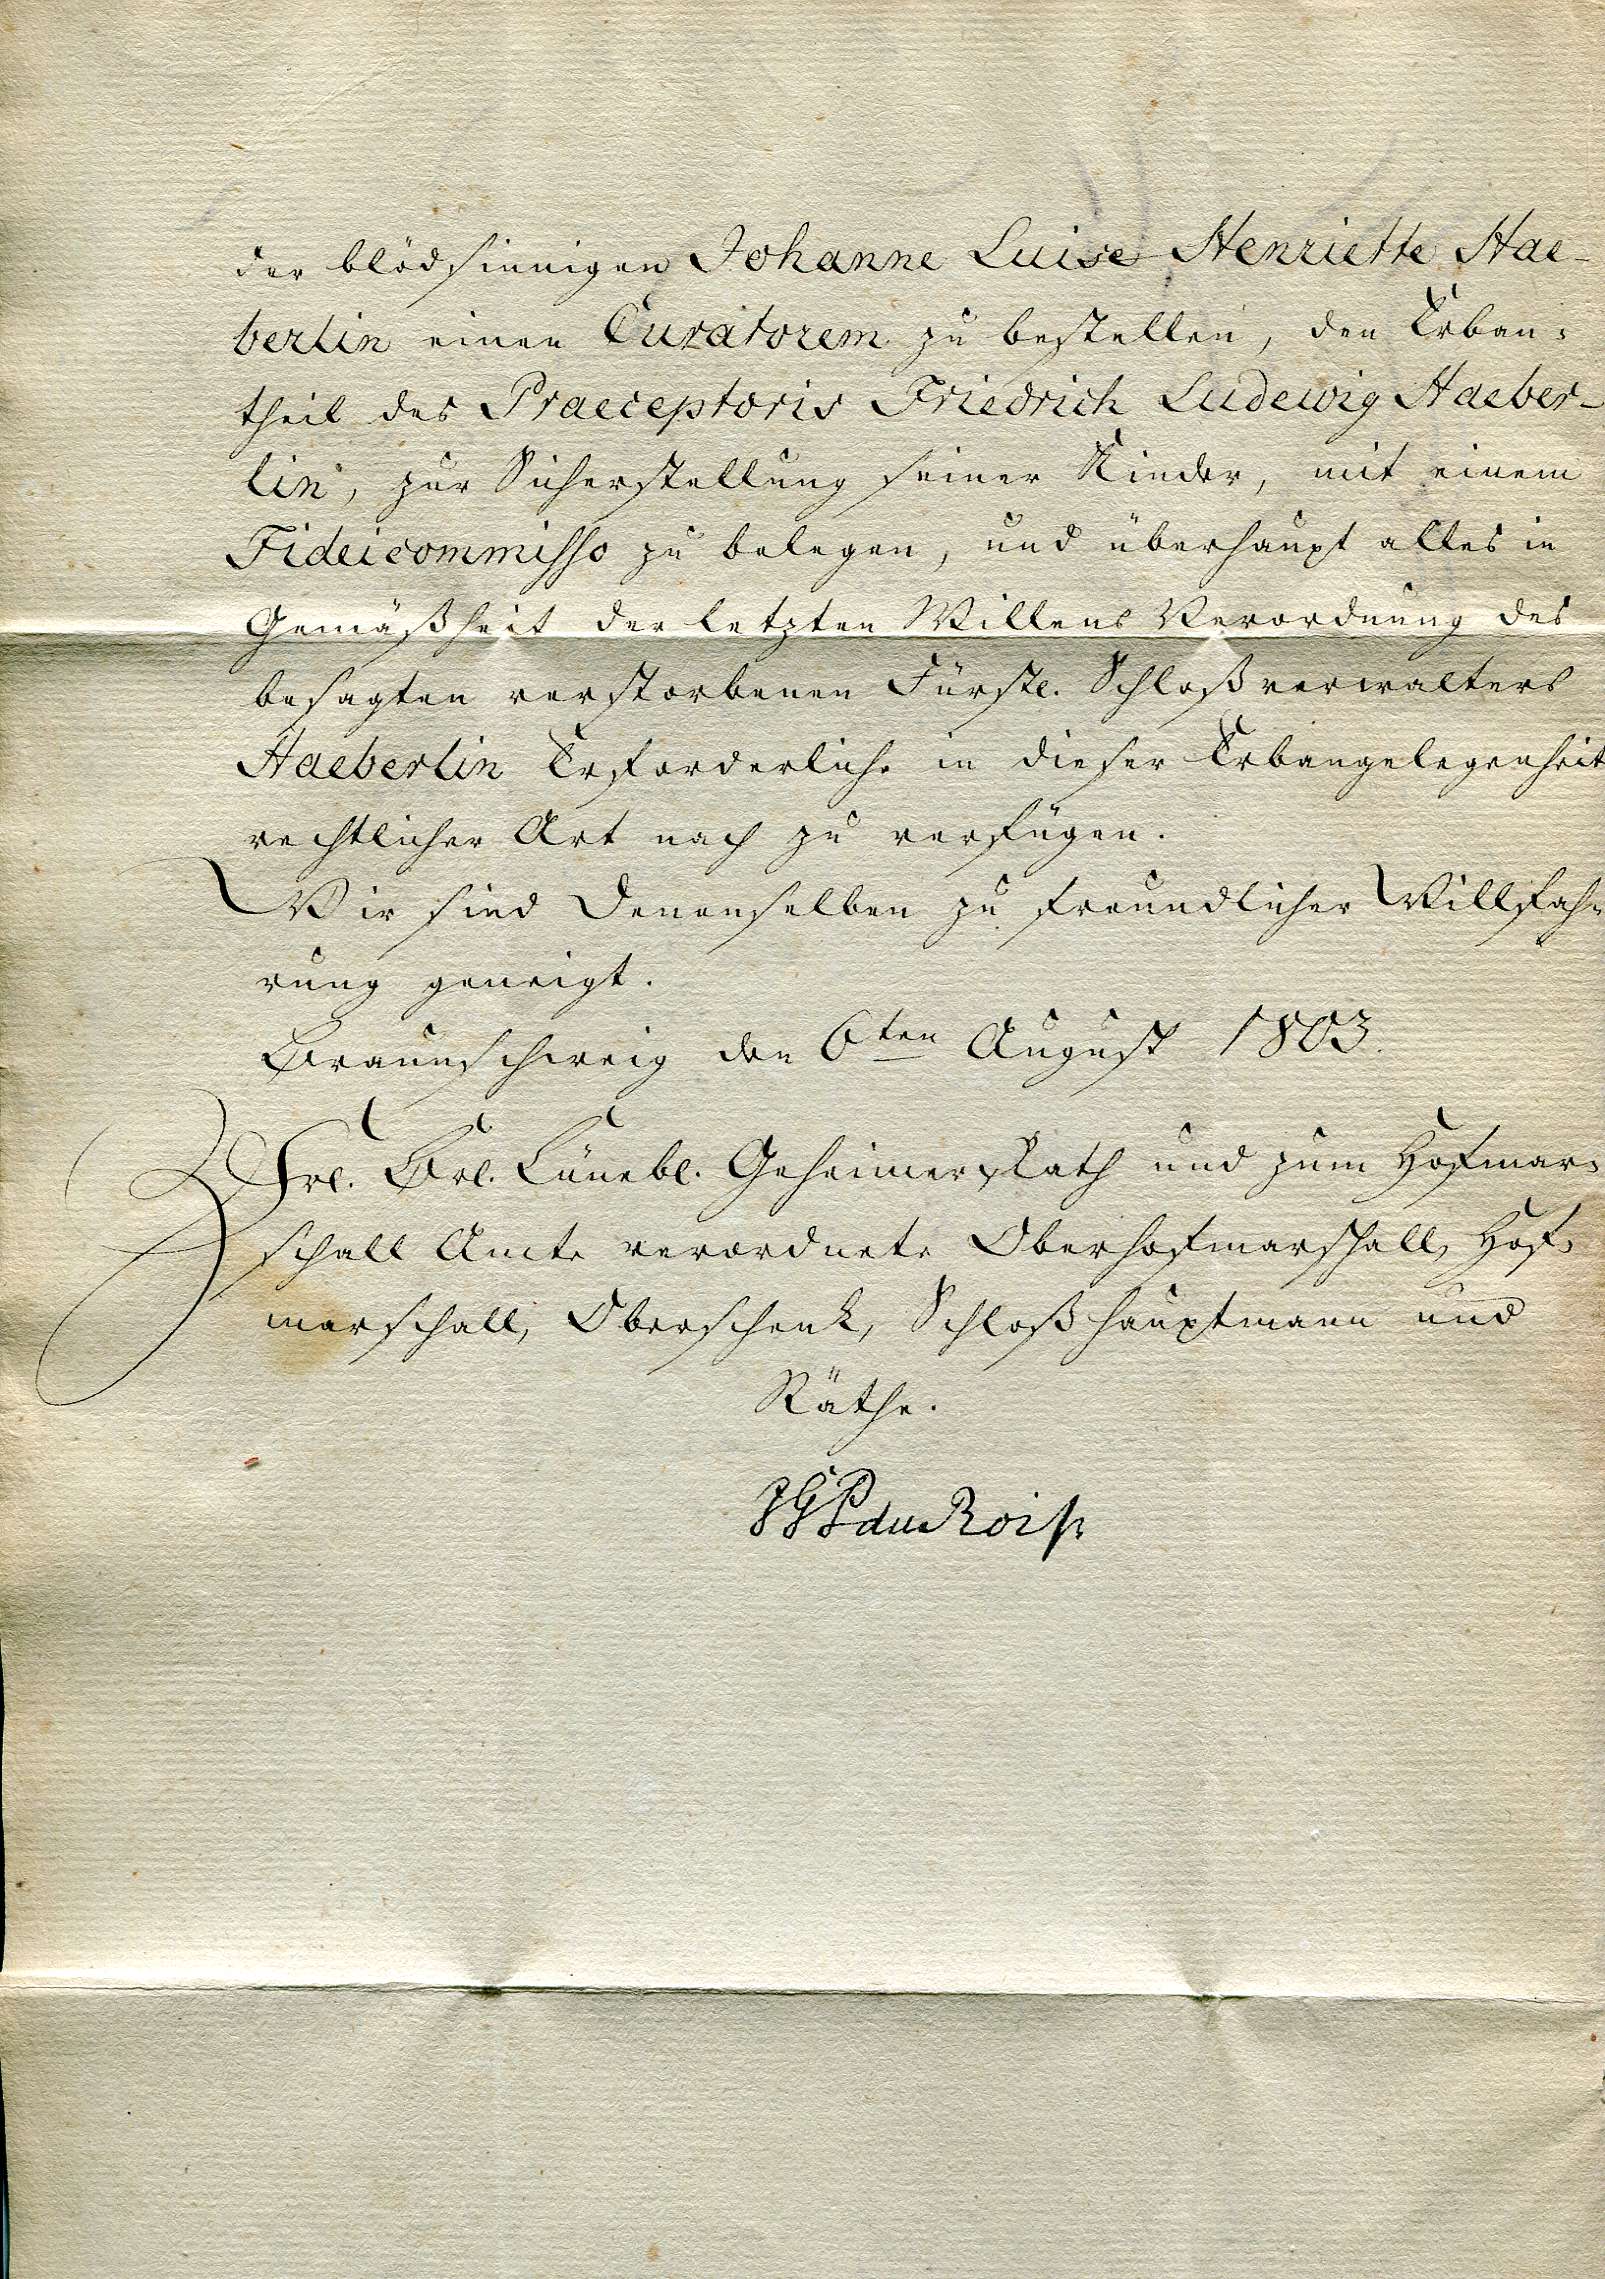 der blödsinnigen Johanne Luise Henriette Hae-
berlin einen Curatorem zu bestellen, den Erban-
theil des Praeceptoris Friedrich Ludewig Haeber-
lin, zur Sicherstellung seiner Kinder, mit einem
Fideicommisso zu belegen, und überhaupt alles in
Gemäßheit der letzten Willens Verordnung des
besagten verstorbenen Fürstl. Schloßverwalters
Haeberlin Erforderliche in dieser Erbangelegenheit
rechtlicher Art nach zu verfügen.
Wir sind Denenselben zu freundlicher Willfah-
rung geneigt.
Braunschweig den 6ten August 1803.
Frl. Brl. Lünebl. Geheimer Rath und zum Hofmar-
schall Amte verordnete Oberhofmarschall, Hof-
marschall, Oberschenk, Schloßhauptmann und
Räthe.
JGP du Roi